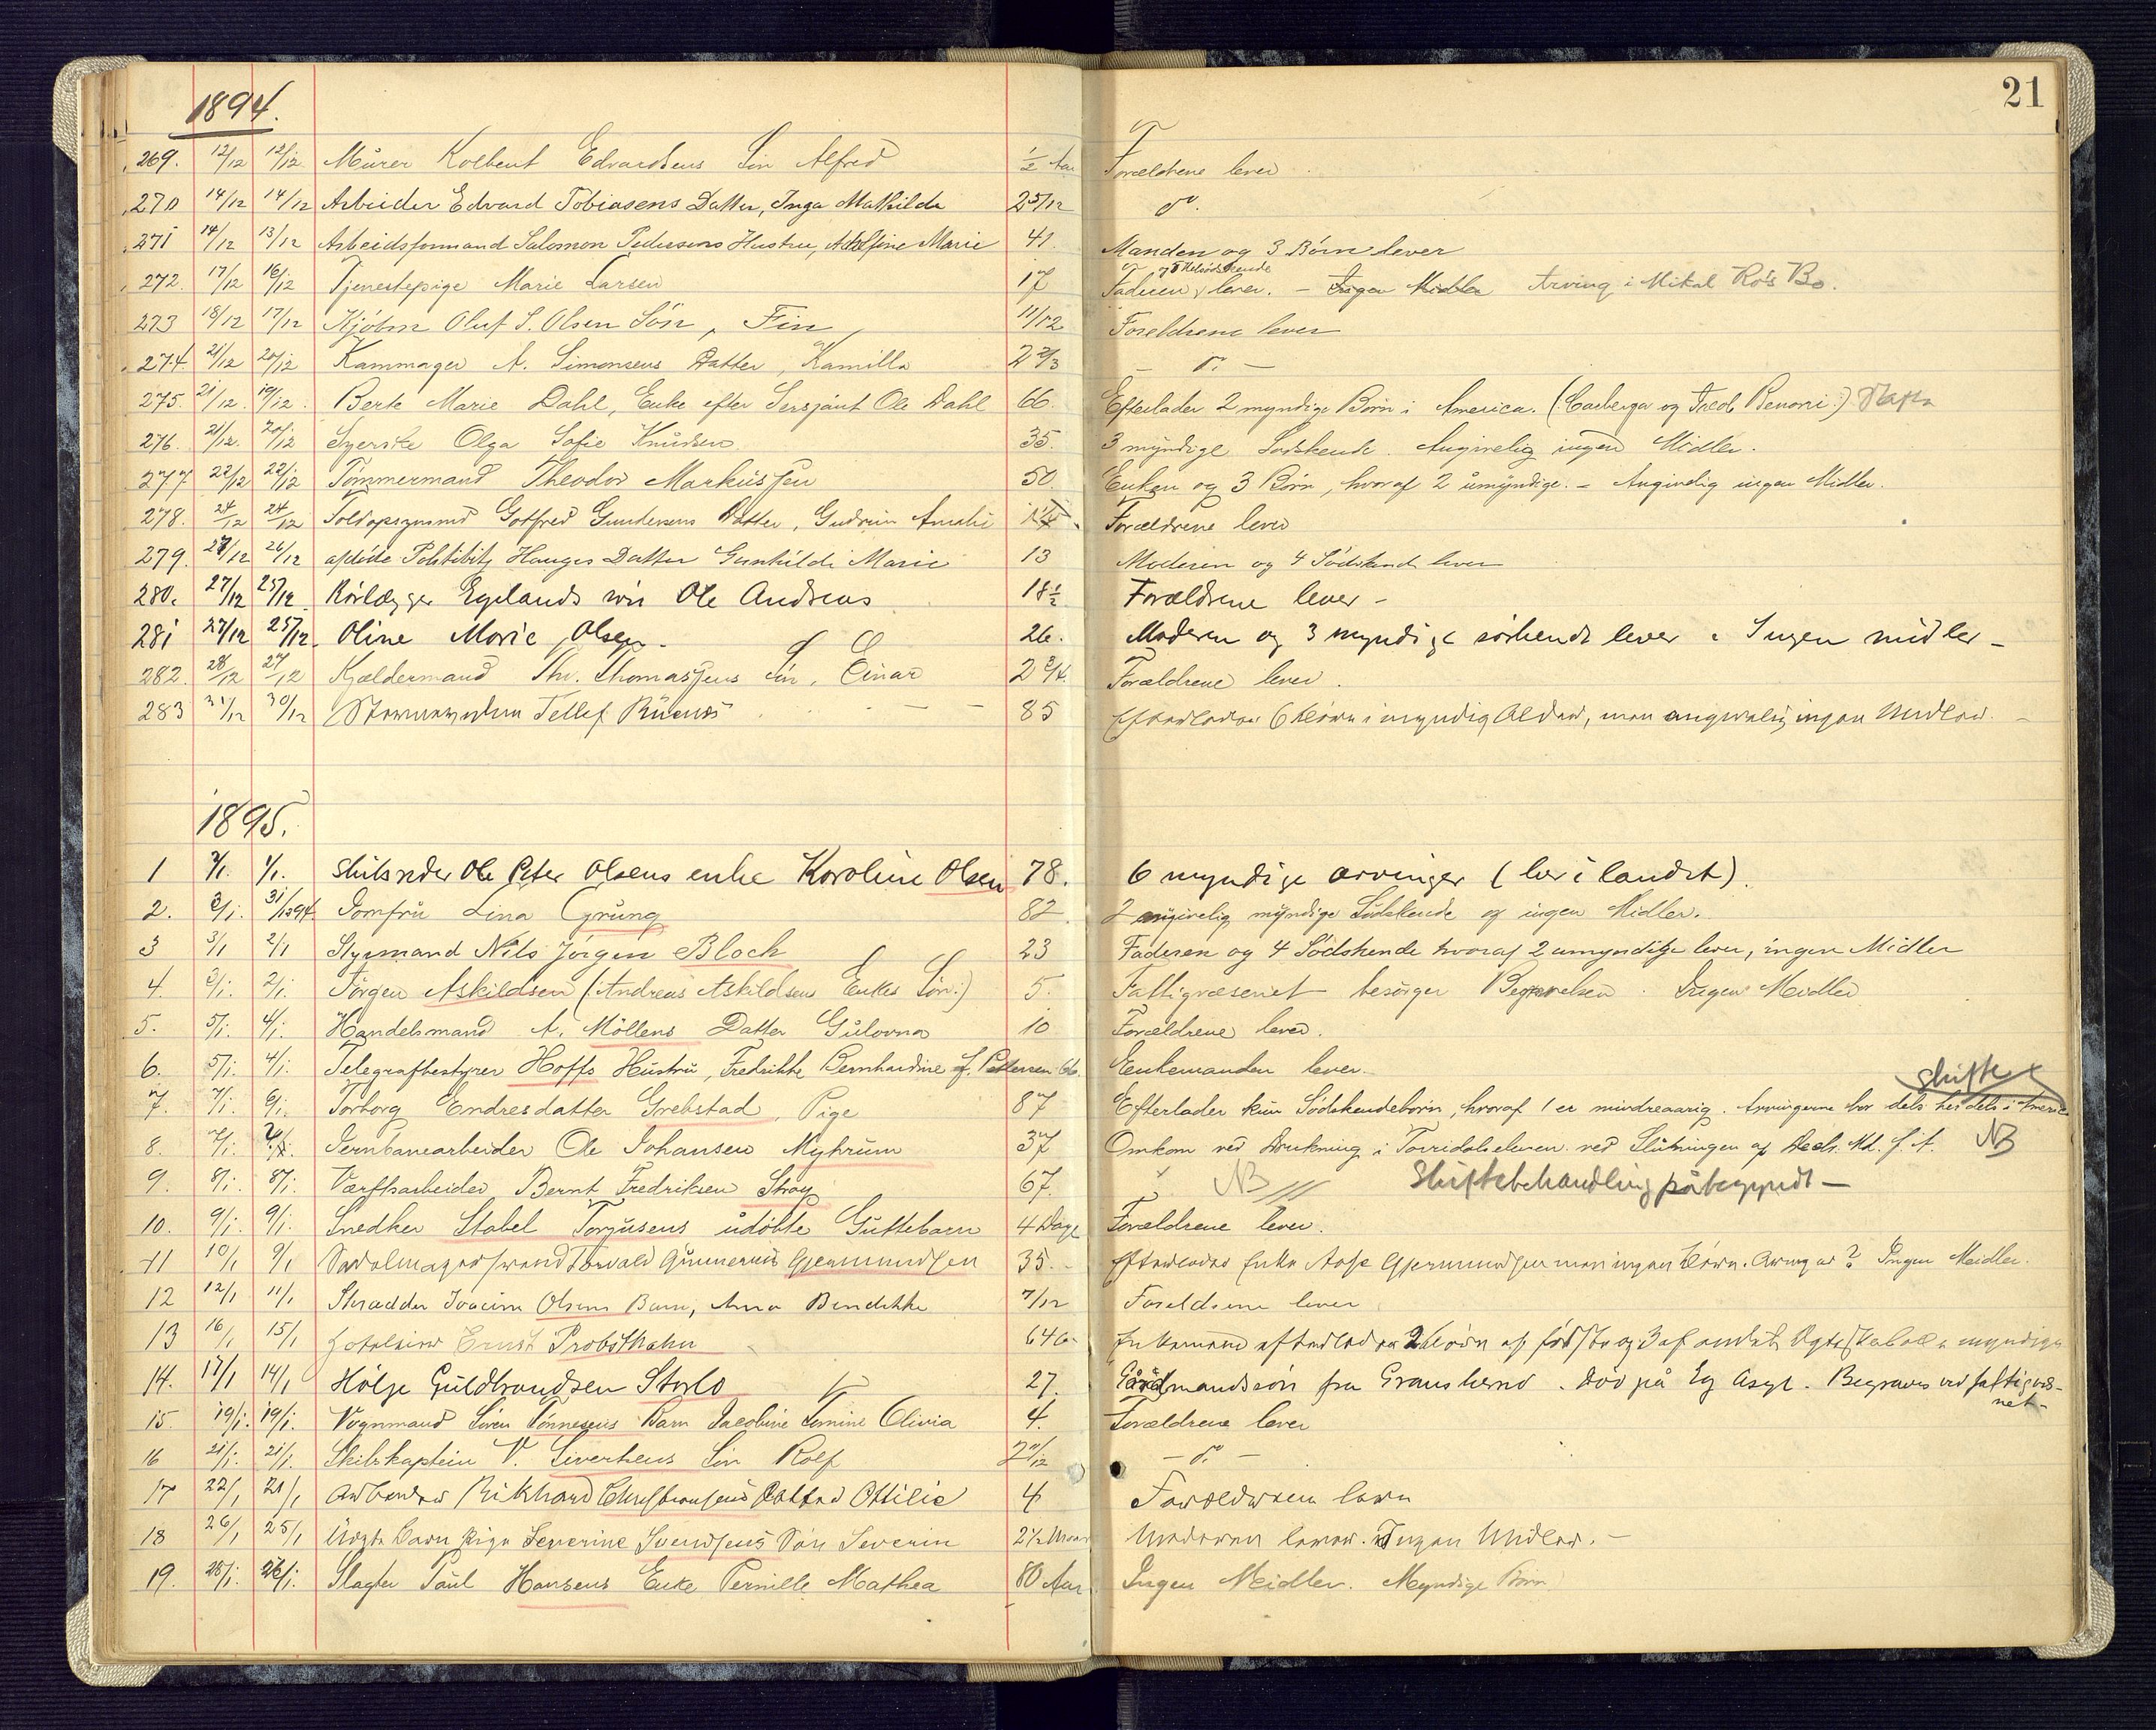 21
1894.
269. 12/12 12/12 Murer Kolbent Edvardsens Søn Alfred 1/2 Aar Forældrene lever
270 14/12 14/12 Arbeider Edvard Tobiasens Datter, Inga Mathilde 2 5/12 do.
271 14/12 13/12 Arbeidsformand Salomon Pedersens Hustru, Adolfine Marie 41. Manden og 3 Børn lever
272. 17/12 16/12 Tjenestepige Marie Larsen 17 Faderen og Helsødskende lever. – Ingen Midler Arving i Mikal Ro's Bo.
273 18/12 17/12 Kjøbm Oluf S. Olsen Søn, Fin 11/12 Forældrene lever
274. 21/12 20/12 Kammager A. Simonsens Datter, Kamilla 2 2/3 – do. –
275. 21/12. 19/12. Berte Marie Dahl, Enke efter Sersjant Ole Dahl 66. Efterlader 2 myndige Børn i America. (
276. 21/12. 20/12 Syerske Olga Sofie Knudsen 35. 3 myndige Sødskende. Angivelig ingen Midler.
277 22/12 22/12 Tømmermand Theodor Markussen 50. Enken og 3 Børn, hvoraf 2 umyndige. – Angivelig ingen Midler.
278. 24/12 24/12 Toldopsynsmd Gotfred Gundersens Datter, Gudrun Amalie Forældrene lever
279. 27/12 26/12 afdøde Politibtj Hauges Datter Gunhilde Marie 13 Moderen og 4 Sødskende lever
280. 27/12 25/12 Rørlægger Egelands søn Ole Andreas 18 1/2 Forældrene lever –
281 27/12 25/12. Oline Marie Olsen. 26. Moderen og 3 myndige søskende lever. Ingen midler –
282. 28/12 27/12 Kjældermand Th. Thomassens Søn, Einar 2 3/4. Forældrene lever.
283 31/12 30/12 Tellef 85 Efterlader 6 Børn i myndig Alder, men angivelig ingen Midler. –
1895.
1 2/1. 1/1. Skibsreder Ole Peter Olsens enke Karoline Olsen 78. 6 myndige arvinger (her i landet).
2. 2/1. 31/12 94. Jomfru Lina Grüng 82 2 angivelig myndige Sødskende og ingen Midler.
3 3/1 2/1 Styrmand Nils Jørgen Bloch 23 Faderen og 4 Sødskende hvoraf 2 umyndige lever, ingen Midler
4. 3/1. 2/1. Jørgen Askildsen (: Andreas Askildsens Enkes Søn :) 5. Fattigvæsenet besørger Begravelsen. Ingen Midler
5. 5/1. 4/1. Handelsmand A. Möllens Datter Gulovna 10 Forældrene lever.
6. 5/1. 4/1. Telegrafbestyrer Hoffs Hustru, Fredrikke Bernhardine f. Pettersen 66. Enkemanden lever.
skifte
7. 7/1. 6/1. Torborg Endresdatter Grebstad, Pige 87 Efterlader kun Sødskendebørn, hvoraf 1 er mindreaarig. Arvingerne bor dels her dels i America
8. 7/1. Jernbanearbeider Ole Johansen Myhrum 37 Omkom ved Drukning i Torridalselven ved Slutningen af Decbr. Md. f. A. NB
9. 8/1. 8/1. Værftsarbeider Bernt Fredriksen Stray 67. NB Skiftebehandling påbegyndt –
10. 9/1. 9/1. Snedker Stabel Torjusens udøbte Guttebarn 4 Dage Forældrene lever.
11 10/1 9/1 Sadelmagersvend Torvald Gunnerius Gjermundsen 35. – Efterlader Enke Aase Gjermundsen men ingen Børn. Arvinger? Ingen Meidler.
12 12/1 11/1 Skrædder Joacim Olsens Barn, Anna Bendikke 7/12 Forældrene lever
13 16/1 15/1 Hoteleier Ernst Probsthahn 64 Enkemand efterlader 2 Børn af første og 3 af andet Ægteskab alle myndige
14. 17/1 14/1 Hølje Guldbrandsen Storlo 27. Gårdmandssøn fra Gransherred. Død på Eg Asyl. Begraves ved fattigvæs-
net –
15. 19/1. 19/1. Vognmand Søren Tønnesens Barn Jacobine Tomine Olivia 4. Forældrene lever
16 21/1. 21/1. Skibskaptein V. Siverthens Søn Rolf 2 11/12 – do. –
17 22/1 21/1 Arbeider Rikhard Christensens Datter Ottilie 4 Forældrene lever
18 26/1 25/1 Pige Severine Svendsens Søn Severin 2 1/2 Maaned Moderen lever. Ingen Midler. –
19. 28/1. 26/1. Slagter Paul Hansens Enke Pernille Mathea 80 Aar Ingen Meidler. Myndige Børn